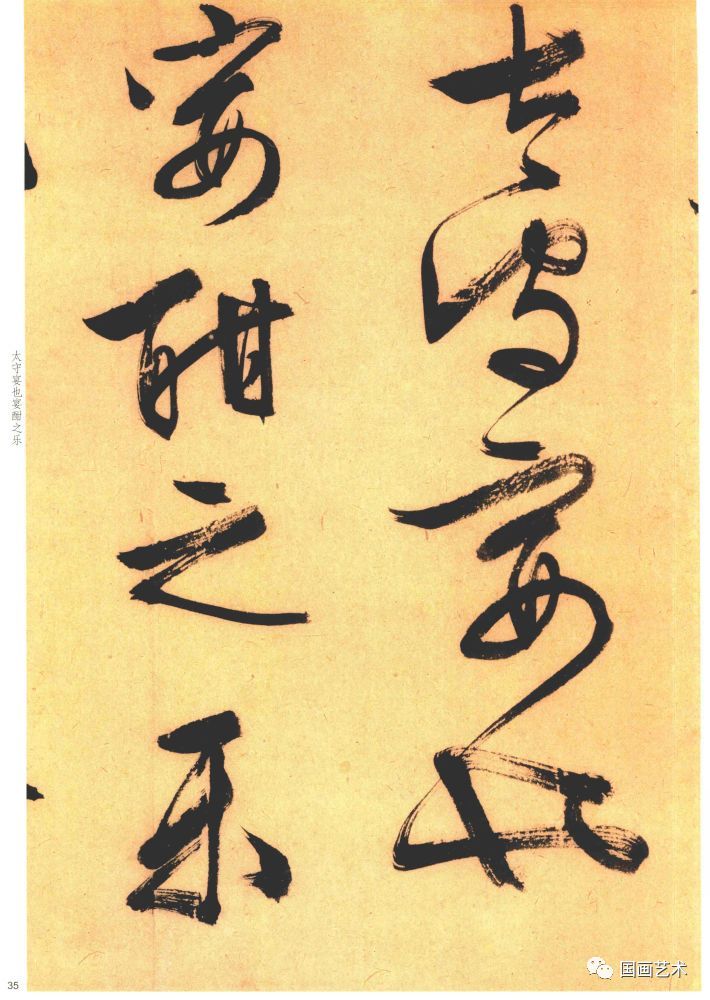 太守宴也
宴酣之乐
太守宴也宴酣之乐
35
国画艺术